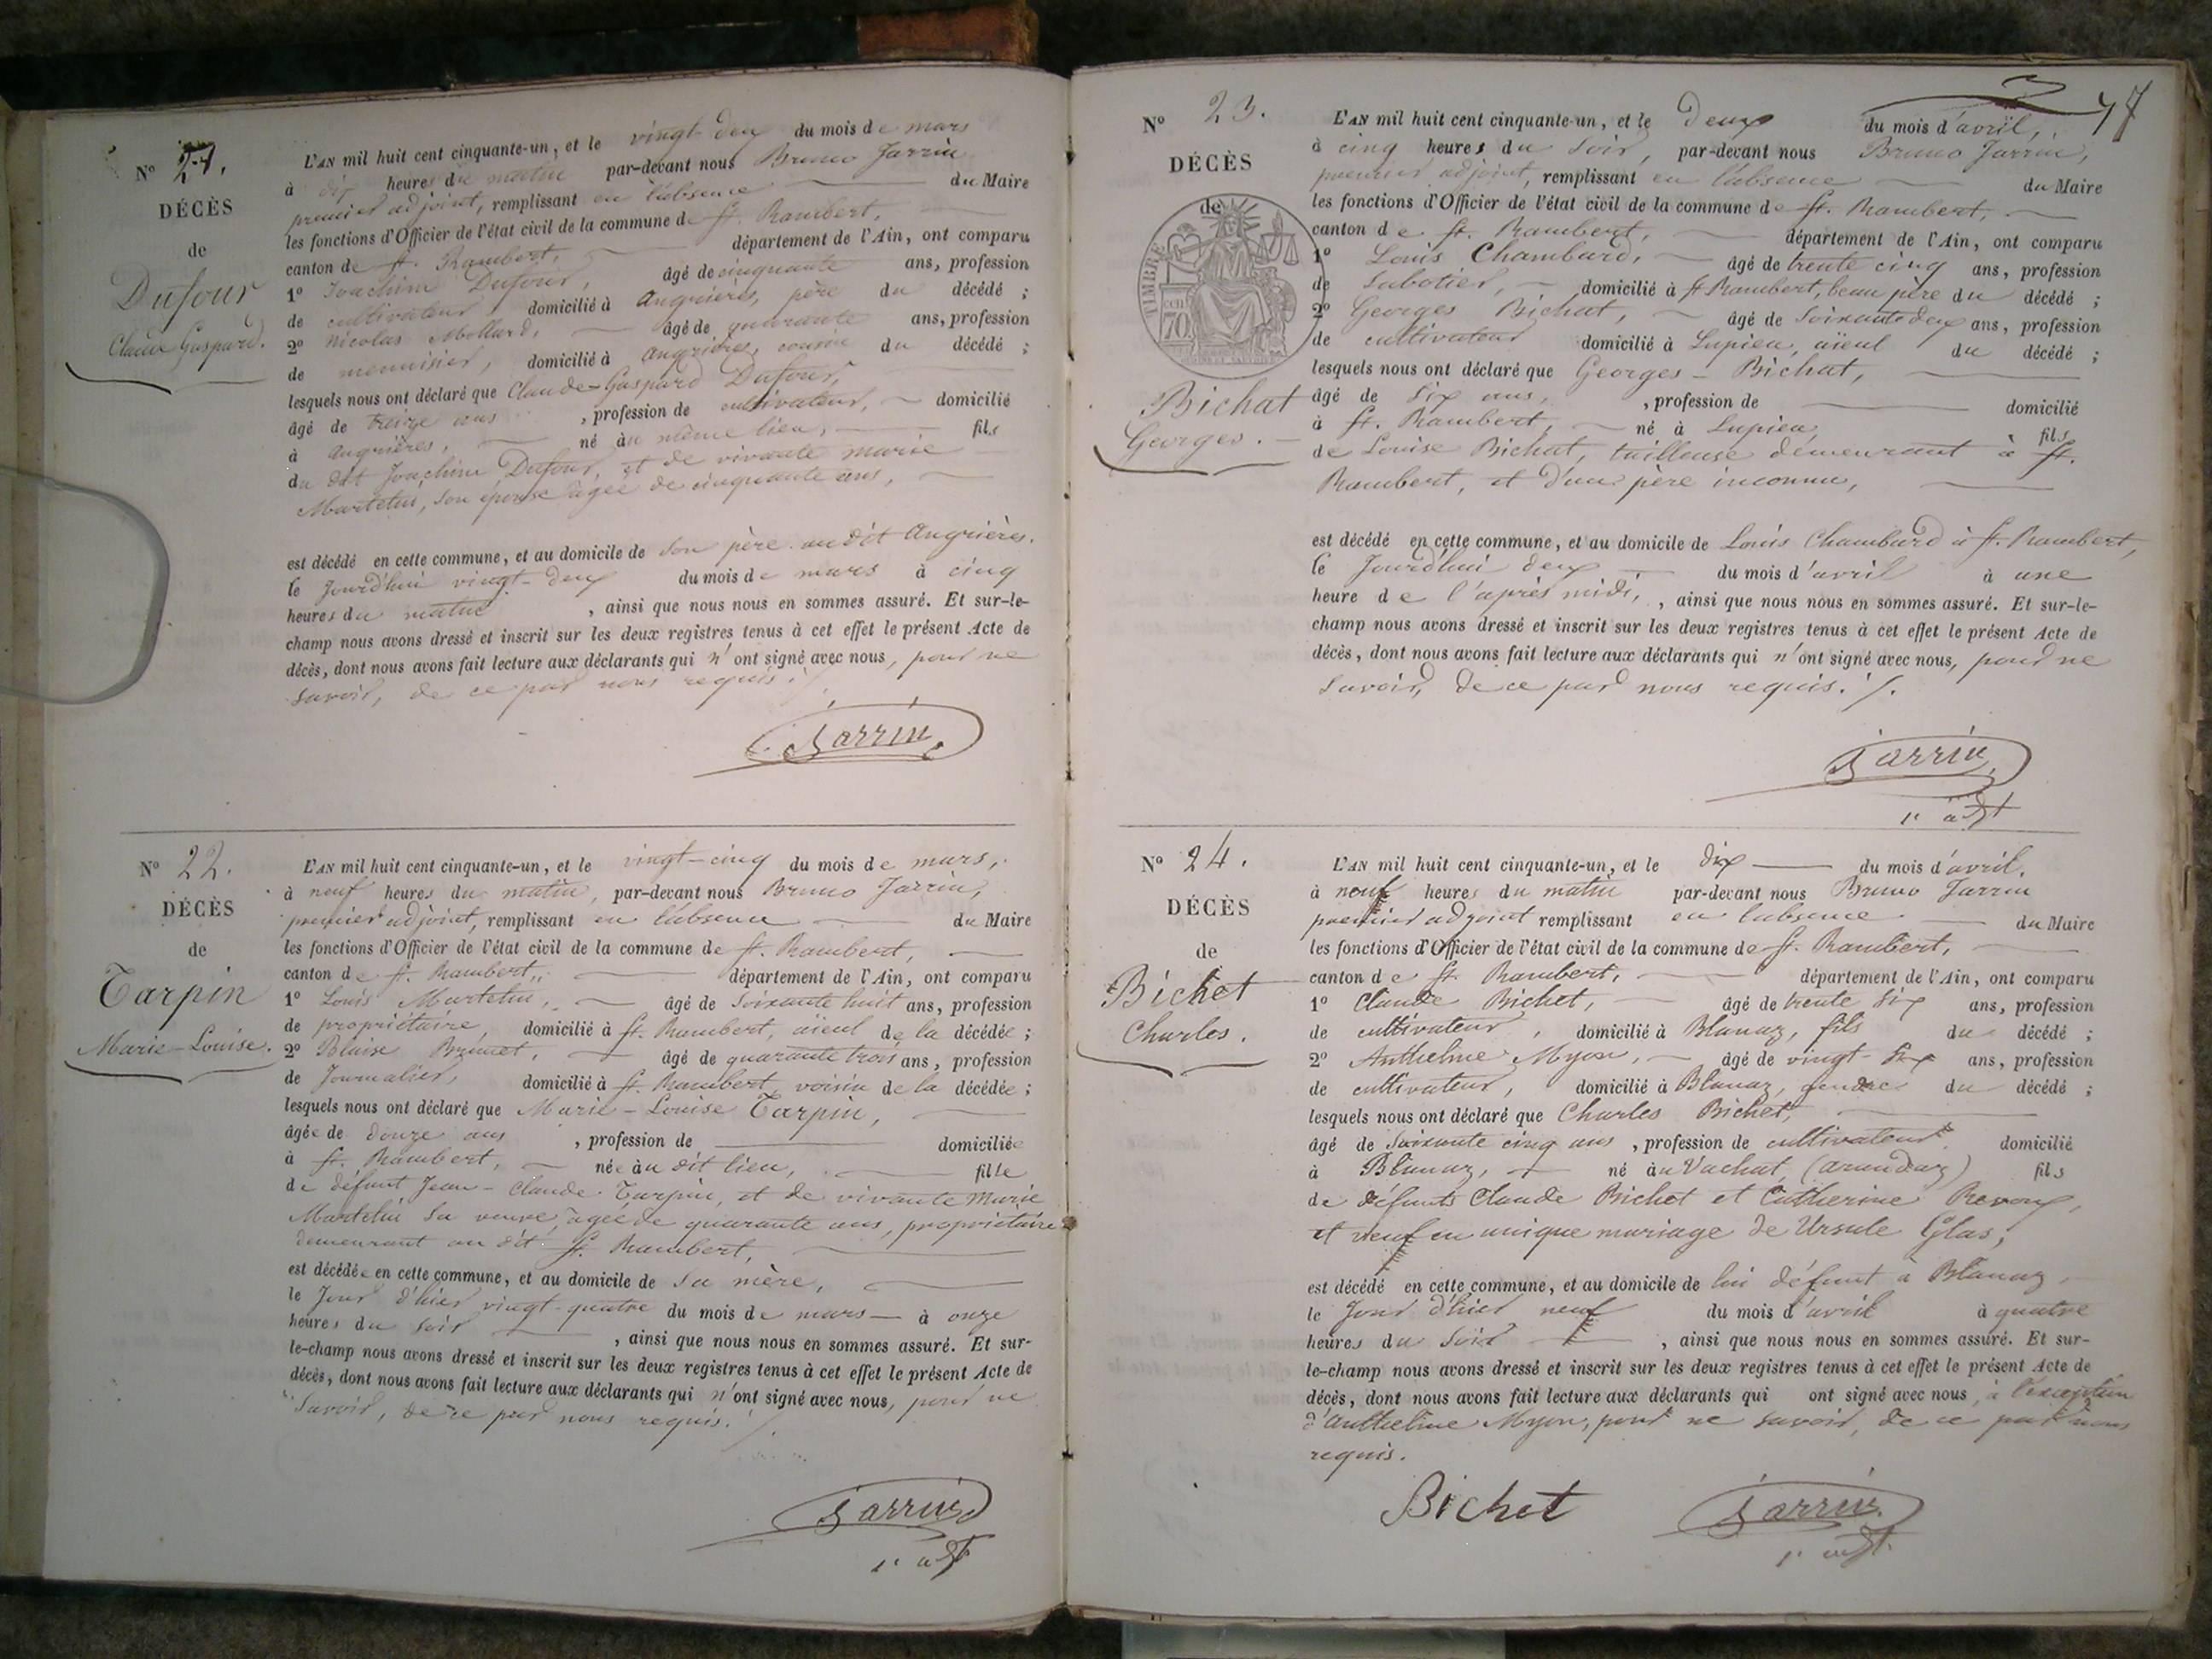 N° 21.
DÉCÈS
de
Dufour
Claude Gaspard.
L'AN mil huit cent cinquante-un, et le vingt-deux du mois de mars
à dix heures du matin par-devant nous Bruno Jarrin
premier adjoint, remplissant en l'absence du Maire
les fonctions d'Officier de l'état civil de la commune de St. Rambert,
canton de St. Rambert, département de l'Ain, ont comparu
1° Joachim Dufour, âgé de cinquante ans, profession
de cultivateur, domicilié à Angrières, père du décédé ;
2° Nicolas Mollard, âgé de quarante ans, profession
de menuisier, domicilié à Angrières, cousin du décédé ;
lesquels nous ont déclaré que Claude-Gaspard Dufour,
âgé de treize ans , profession de cultivateur, domicilié
à Angrières, né au même lieu, fils
du dit Joachim Dufour, et de vivante marie
Martelin, son épouse âgée de cinquante ans,
est décédé en cette commune, et au domicile de son père au dit Angrières.
le Jourd'hui vingt-deux du mois de mars à cinq
heures du matin , ainsi que nous nous en sommes assuré. Et sur-le-
champ nous avons dressé et inscrit sur les deux registres tenus à cet effet le présent Acte de
décès, dont nous avons fait lecture aux déclarants qui n'ont signé avec nous, pour ne
savoir, de ce par nous requis ./.
Jarrin
N° 22.
DÉCÈS
de
Tarpin
Marie-Louise.
L'AN mil huit cent cinquante-un, et le vingt-cinq du mois de mars,
à neuf heures du matin, par-devant nous Bruno Jarrin,
premier adjoint, remplissant en l'absence du Maire
les fonctions d'Officier de l'état civil de la commune de St. Rambert,
canton de St. Rambert, département de l'Ain, ont comparu
1° Louis Martelin, âgé de soixante huit ans, profession
de propriétaire, domicilié à St. Rambert, aïeul de la décédée ;
2° Blaise Brunet, âgé de quarante trois ans, profession
de Journalier, domicilié à St. Rambert, voisin de la décédée ;
lesquels nous ont déclaré que Marie-Louise Tarpin,
âgée de douze ans , profession de domiciliée
à St. Rambert, née au dit lieu, fille
de défunt Jean-Claude Tarpin, et de vivante Marie
Martelin sa veuve âgée de quarante ans, propriétaire
demeurant au dit St. Rambert,
est décédée en cette commune, et au domicile de sa mère,
le Jour d'hier vingt-quatre du mois de mars à onze
heures du soir , ainsi que nous nous en sommes assuré. Et sur-
le-champ nous avons dressé et inscrit sur les deux registres tenus à cet effet le présent Acte de
décès, dont nous avons fait lecture aux déclarants qui n'ont signé avec nous, pour ne
Savoir, de ce par nous requis. /.
Jarrin
1er adjt
77
N° 23.
DÉCÈS
de
TIMBRE
70
Bichat
Georges.
L'AN mil huit cent cinquante-un, et le deux du mois d'avril,
à cinq heures du soir, par-devant nous Bruno Jarrin,
premier adjoint, remplissant en l'absence du Maire
les fonctions d'Officier de l'état civil de la commune de St. Rambert,
canton de St. Rambert, département de l'Ain, ont comparu
1° Louis Chambard, âgé de trente cinq ans, profession
de Sabotier, domicilié à St Rambert, beau père du décédé ;
2° Georges Bichat, âgé de soixante deux ans, profession
de cultivateur domicilié à Lupieu, aïeul du décédé ;
lesquels nous ont déclaré que Georges-Bichat,
âgé de six ans, , profession de domicilié
à St. Rambert, né à Lupieu fils
de Louise Bichat, tailleuse demeurant à St.
Rambert, et d'un père inconnu,
est décédé en cette commune, et au domicile de Louis Chambard à St. Rambert,
le Jourd'hui deux du mois d'avril à une
heure de l'après midi, , ainsi que nous nous en sommes assuré. Et sur-le-
champ nous avons dressé et inscrit sur les deux registres tenus à cet effet le présent Acte de
décès, dont nous avons fait lecture aux déclarants qui n'ont signé avec nous, pour ne
savoir, de ce par nous requis. /.
Jarrin
1er adjt
N° 24.
DÉCÈS
de
Bichet
Charles.
L'AN mil huit cent cinquante-un, et le dix du mois d'avril,
à neuf heures du matin par-devant nous Bruno Jarrin
premier adjoint remplissant en l'absence du Maire
les fonctions d'Officier de l'état civil de la commune de St. Rambert,
canton de St. Rambert, département de l'Ain, ont comparu
1° Claude Bichet, âgé de trente six ans, profession
de cultivateur, domicilié à Blanaz, fils du décédé ;
2° Anthelme Myon, âgé de vingt-six ans, profession
de cultivateur, domicilié à Blanaz, gendre du décédé ;
lesquels nous ont déclaré que Charles Bichet,
âgé de soixante cinq ans , profession de cultivateur domicilié
à Blanaz, né au Vachat (arandaz) fils
de défunts Claude Bichet et Catherine Revoux,
et veuf en unique mariage de Ursule Glas,
est décédé en cette commune, et au domicile de lui défunt à Blanaz,
le Jour d'hier neuf du mois d'avril à quatre
heures du soir , ainsi que nous nous en sommes assuré. Et sur-
le-champ nous avons dressé et inscrit sur les deux registres tenus à cet effet le présent Acte de
décès, dont nous avons fait lecture aux déclarants qui ont signé avec nous, à l'exception
d'anthelme Myon, pour ne savoir, de ce par nous
requis.
Bichet Jarrin
1er adjt.